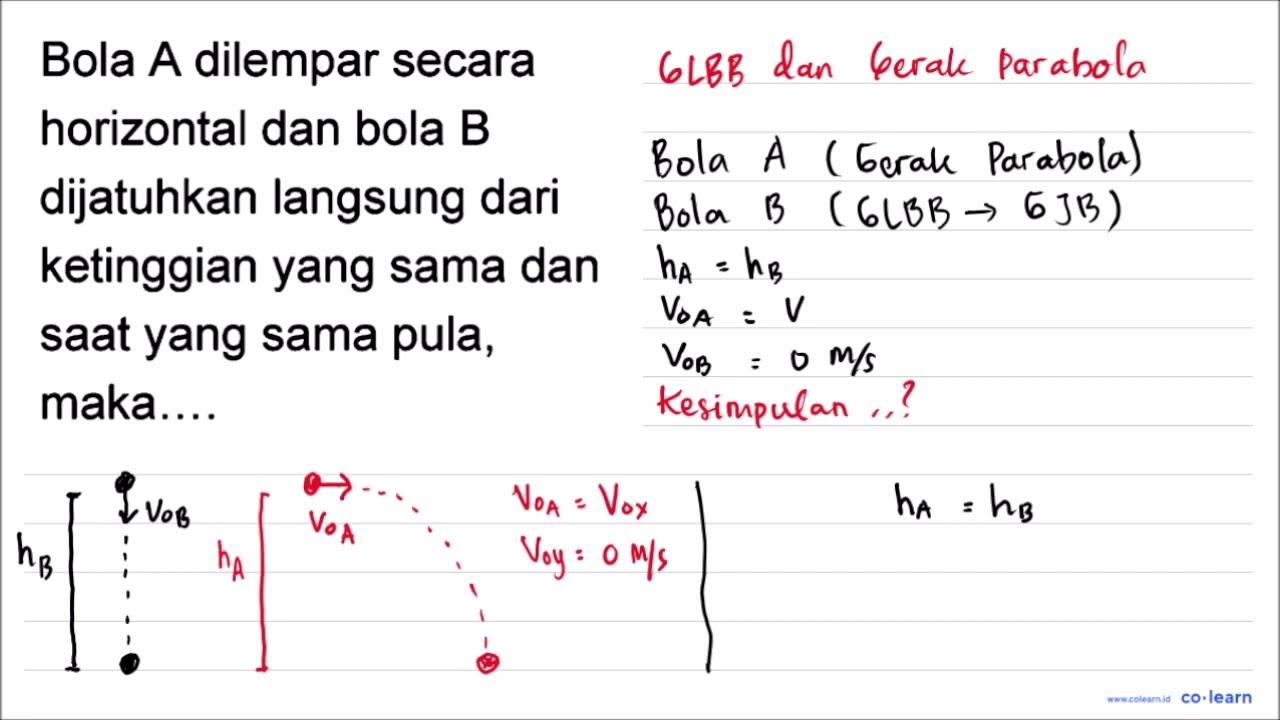 Bola A dilempar secara
horizontal dan bola B
dijatuhkan langsung dari
ketinggian yang sama dan
saat yang sama pula,
maka....
GLBB dan Gerak Parabola
Bola A (Gerak Parabola)
Bola B (GLBB → GJB)
hA = hB
VoA = V
VoB = 0 m/s
Kesimpulan ..?
hB
VoB
hA
VoA
VoA = Vox
Voy = 0 m/s
hA = hB
www.colearn.id co·learn